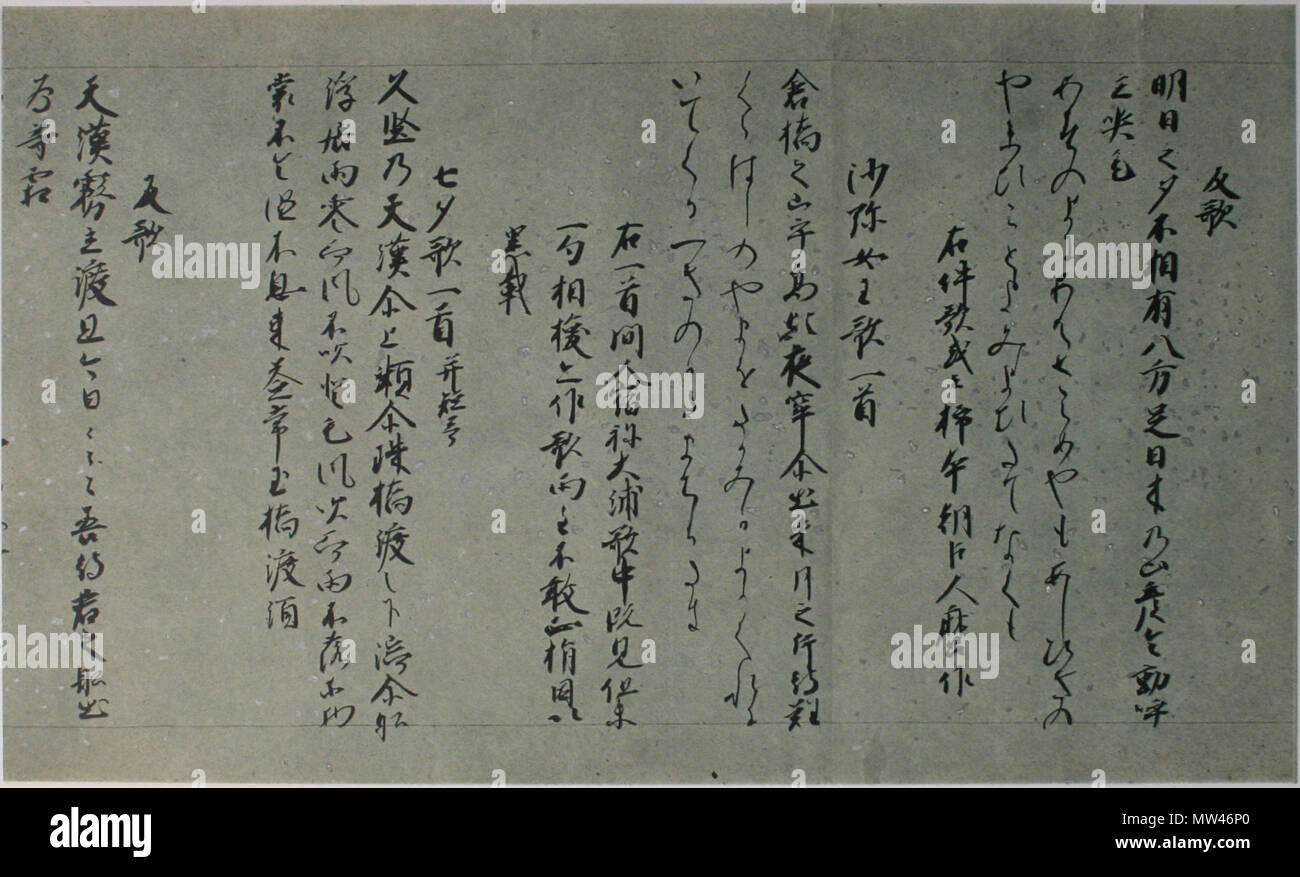 反歌
明日之夕不相有八方足日木乃山彦令動呼
立哭毛
あすのよひあはさらめやもあしひきの
やまひことよみよひたてなくも
右件歌或云柿本朝臣人麿作
沙弥女王歌一首
倉橋之山乎高歟夜窂尓出来月之片待難
くらはしのやまをたかみかよかくれに
いてくるつきのかたまちかたき
右一首間人宿祢大浦歌中既見但末
一句相換亦作歌両主不敢正指因以
累載
七夕歌一首并短哥
久堅乃天漢尓上瀬尓珠橋渡之下湍尓船
浮居雨零而風不吹登毛風吹而雨不落等物
裳不令湿不息来益常玉橋渡須
反歌
天漢霧立渡且今日々々々吾待君之船出
為等霜
alamy
Image ID: MW46P0
www.alamy.com